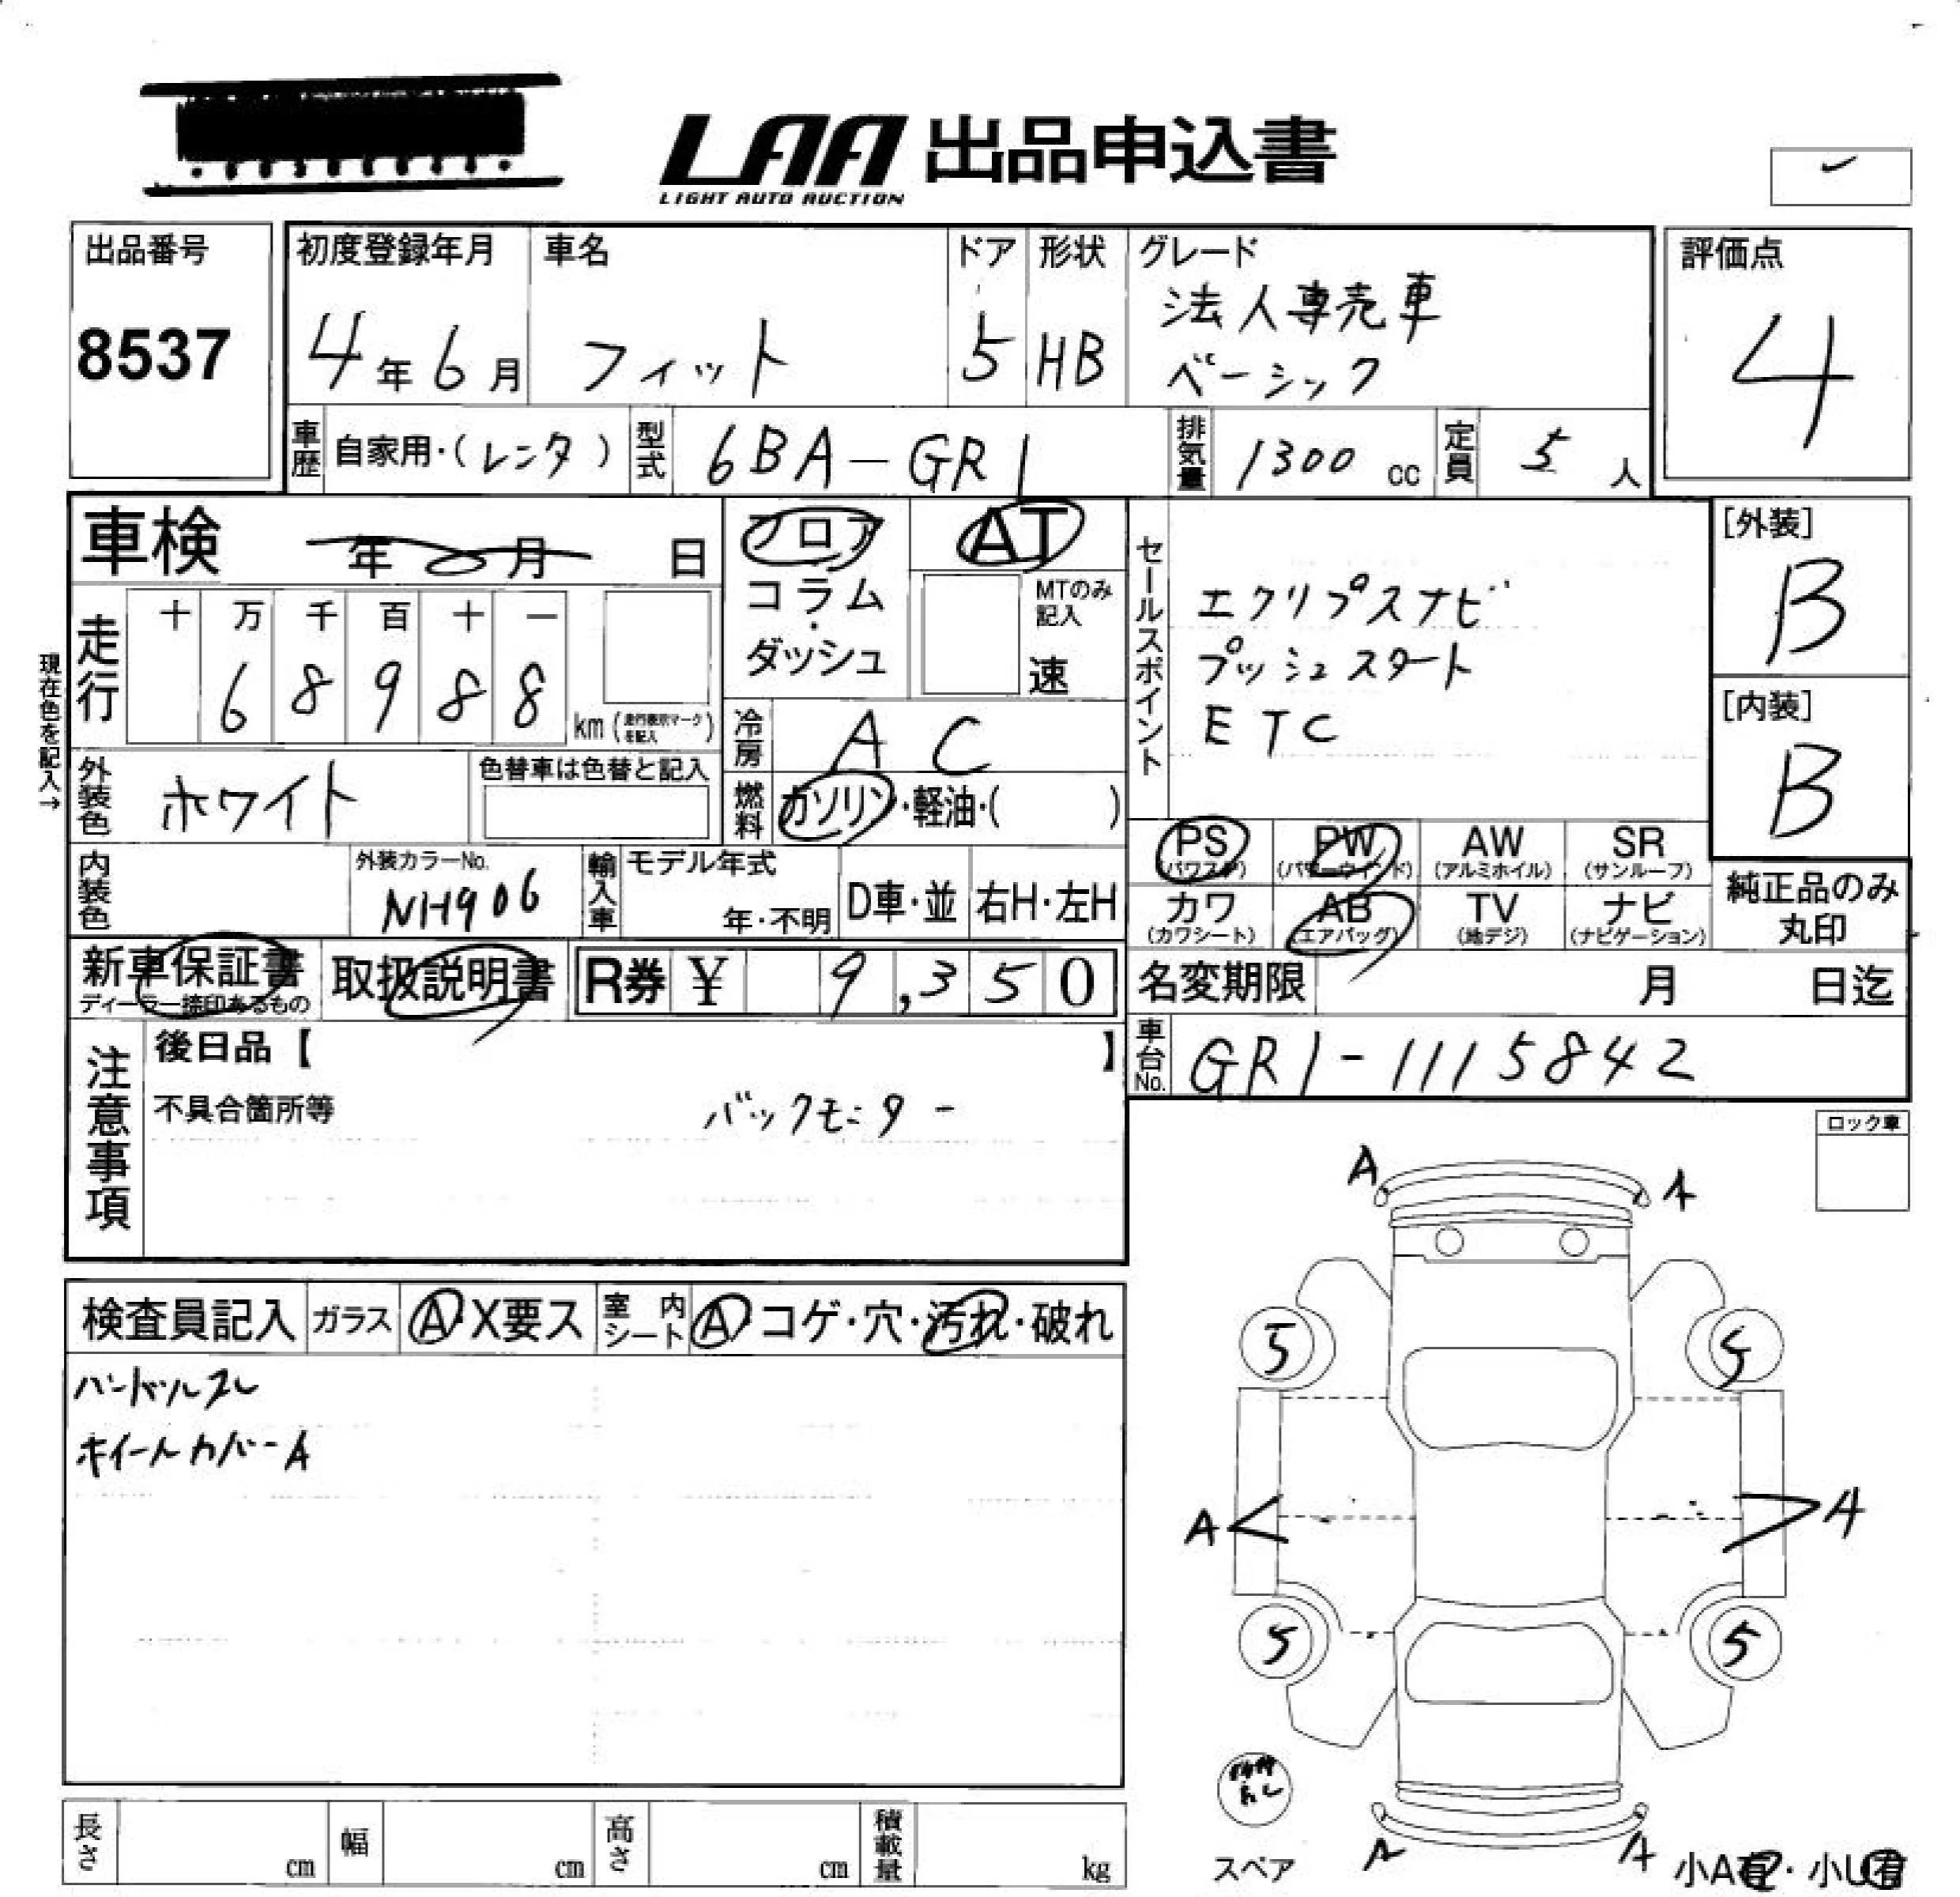 LAA 出品申込書
LIGHT AUTO AUCTION
出品番号
8537
初度登録年月
4年6月
車名
フィット
ドア
5
形状
HB
グレード
法人専売車
ベーシック
評価点
4
車歴
自家用・(レンタ)
型式
6BA-GR1
排気量
1300 cc
定員
5 人
車検 年 月 日
フロア
コラム
・
ダッシュ
AT
MTのみ
記入
速
セールスポイント
エクリプスナビ
プッシュスタート
ETC
[外装]
B
[内装]
B
現在色を記入→
走行
十 万 千 百 十 一
6 8 9 8 8
km (走行表示マークを記入)
冷房
A C
外装色
ホワイト
色替車は色替と記入
燃料
ガソリン・軽油・( )
PS
(パワステ)
PW
(パワーウインド)
AW
(アルミホイル)
SR
(サンルーフ)
カワ
(カワシート)
AB
(エアバッグ)
TV
(地デジ)
ナビ
(ナビゲーション)
純正品のみ
丸印
内装色
外装カラーNo.
NH906
輸入車
モデル年式
年・不明
D車・並
右H・左H
新車保証書
ディーラー捺印あるもの
取扱説明書
R券 ¥ 9,350
名変期限 月 日迄
車台No.
GR1-1115842
注意事項
後日品【 】
不具合箇所等
バックモニター
ロック車
検査員記入
ガラス
A X要ス
室内シート
A コゲ・穴・汚れ・破れ
ハンドルスレ
ホイールカバーA
A A
5 5
A A
5 5
A A
スペア
小A有・小U有
長さ cm
幅 cm
高さ cm
積載量 kg